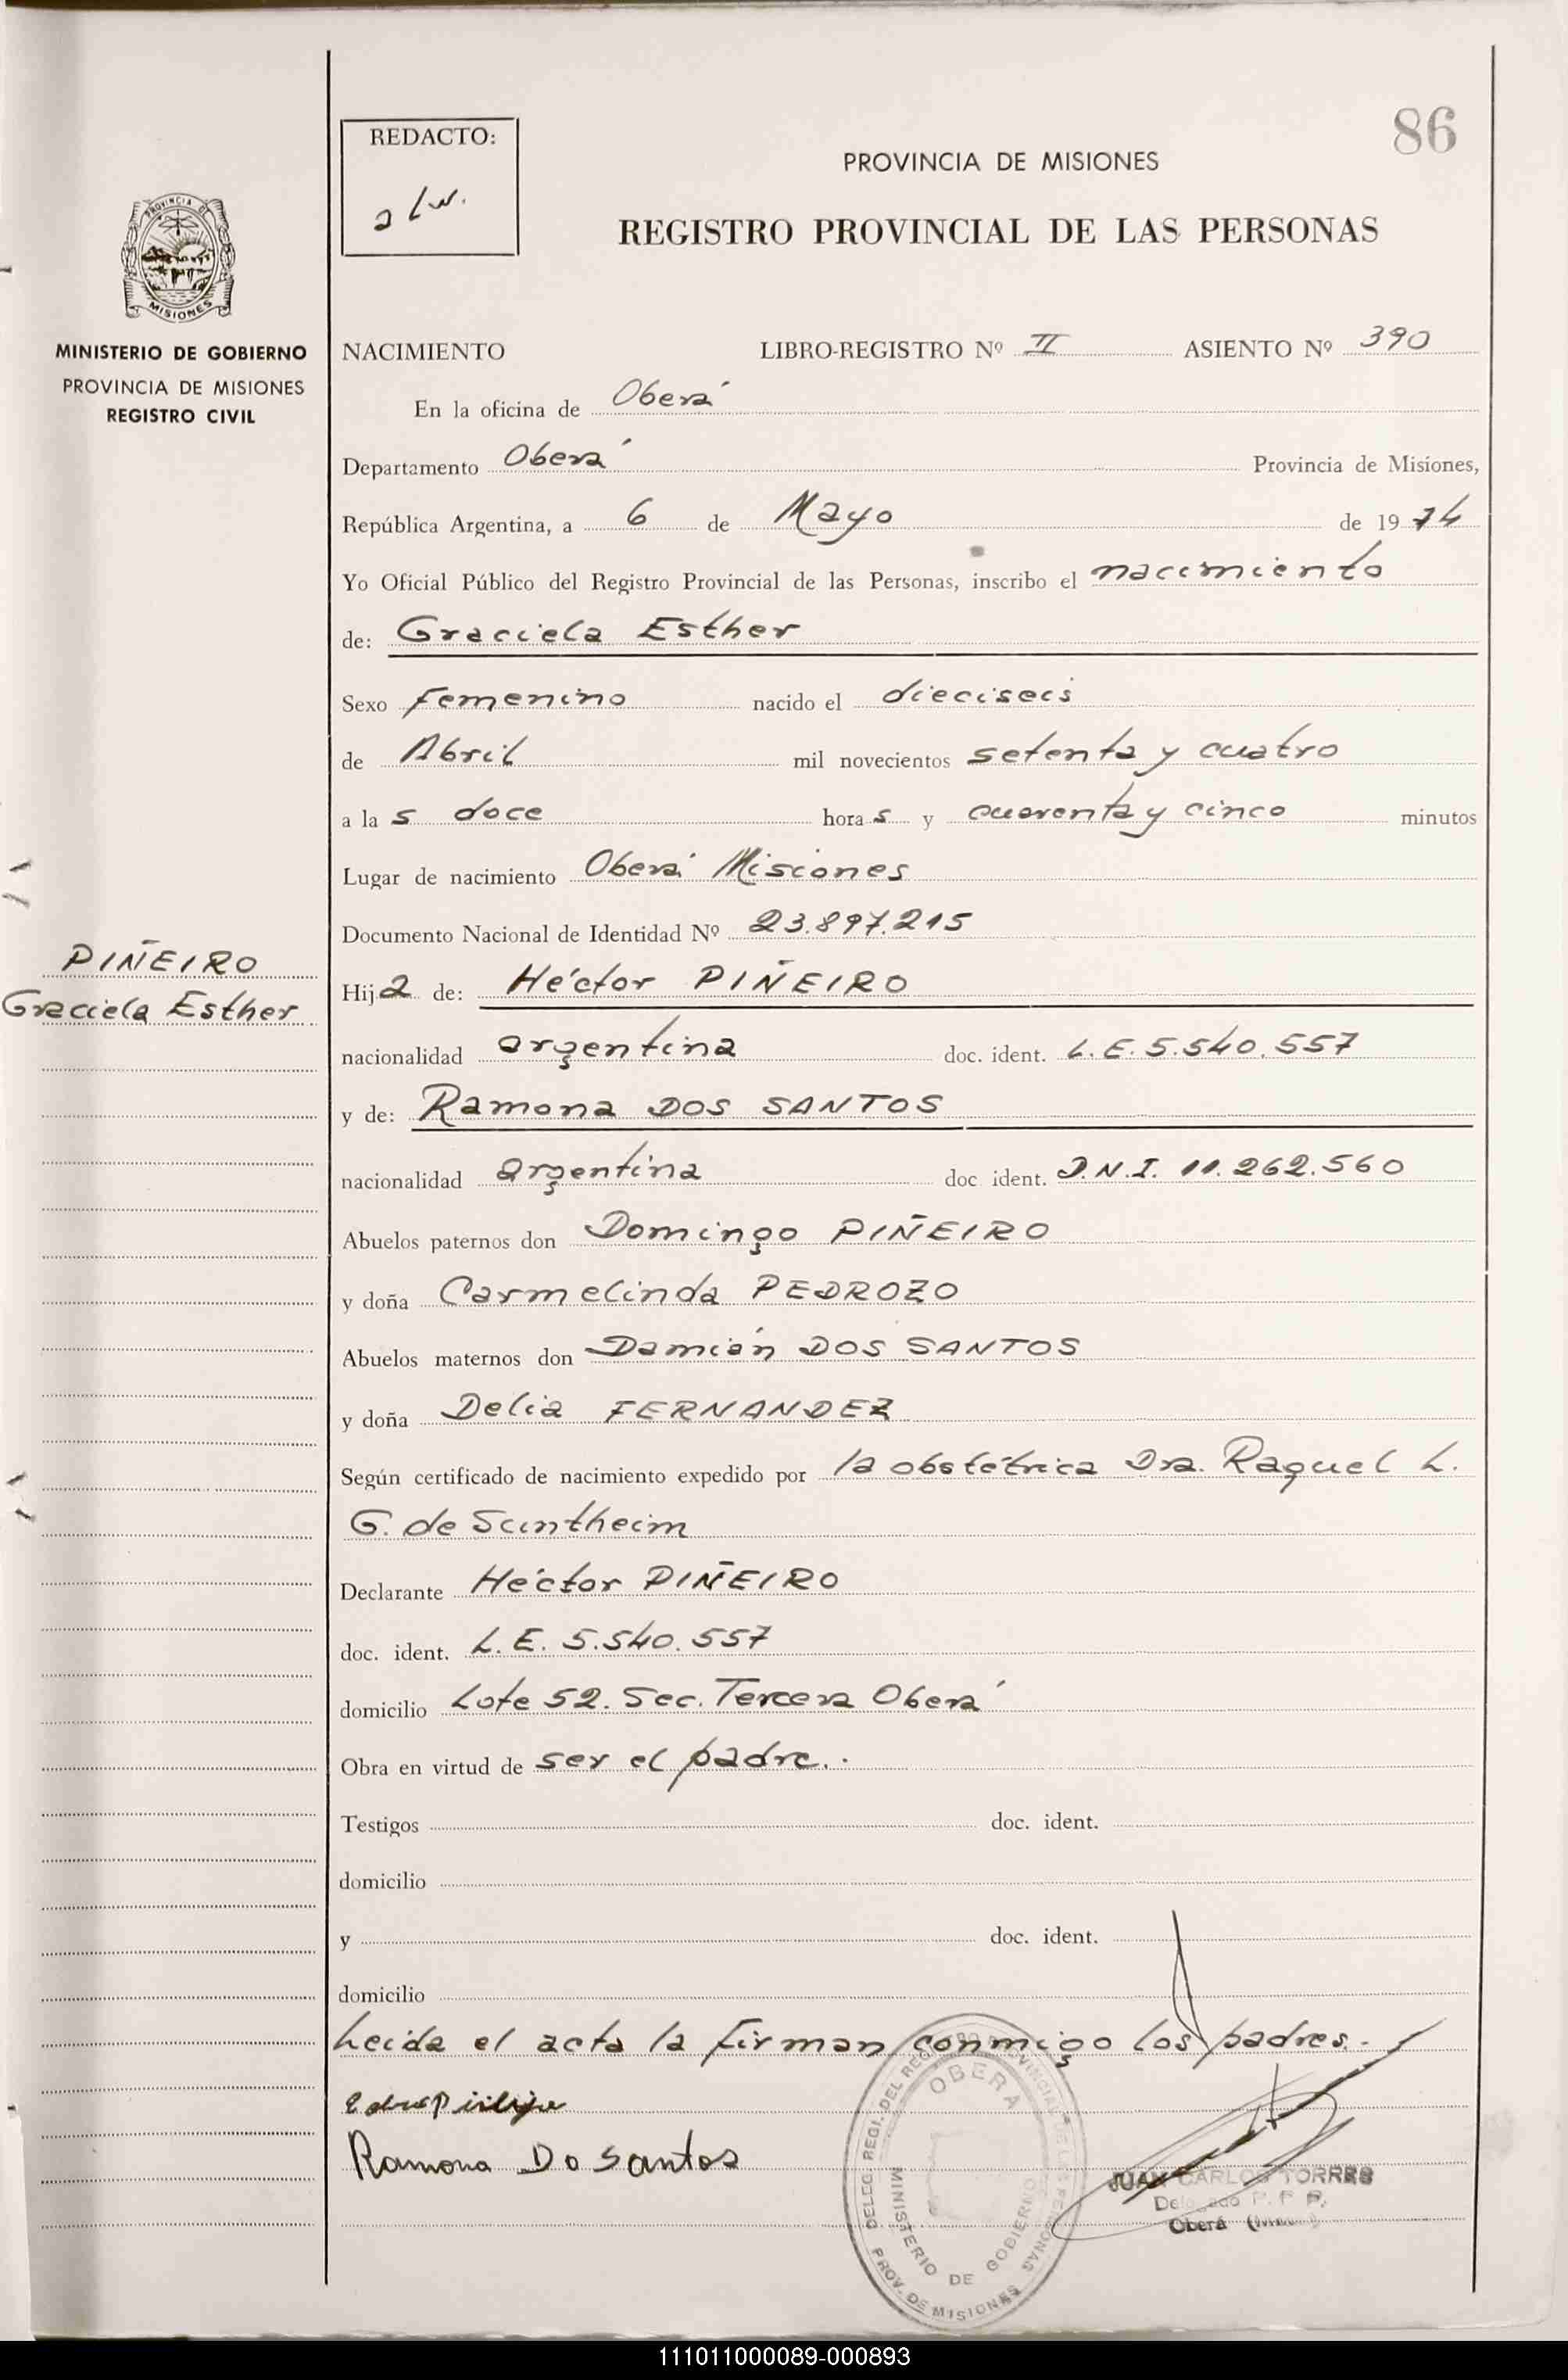 86
REDACTO:
PROVINCIA DE MISIONES
REGISTRO PROVINCIAL DE LAS PERSONAS
PROVINCIA DE
MISIONES
MINISTERIO DE GOBIERNO
PROVINCIA DE MISIONES
REGISTRO CIVIL
PIÑEIRO
Graciela Esther
NACIMIENTO LIBRO-REGISTRO Nº II ASIENTO Nº 390
En la oficina de Oberá
Departamento Oberá Provincia de Misiones,
República Argentina, a 6 de Mayo de 1974
Yo Oficial Público del Registro Provincial de las Personas, inscribo el nacimiento
de: Graciela Esther
Sexo Femenino nacido el dieciseis
de Abril mil novecientos setenta y cuatro
a las doce horas y cuarenta y cinco minutos
Lugar de nacimiento Oberá Misiones
Documento Nacional de Identidad Nº 23.897.215
Hija de: Héctor PIÑEIRO
nacionalidad argentina doc. ident. L.E. 5.540.557
y de: Ramona DOS SANTOS
nacionalidad argentina doc ident. D.N.I. 11.262.560
Abuelos paternos don Domingo PIÑEIRO
y doña Carmelinda PEDROZO
Abuelos maternos don Damián DOS SANTOS
y doña Delia FERNANDEZ
Según certificado de nacimiento expedido por la obstétrica Dra. Raquel L.
G. de Suntheim
Declarante Héctor PIÑEIRO
doc. ident. L.E. 5.540.557
domicilio Lote 52. Sec. Tercera Oberá
Obra en virtud de ser el padre.
Testigos doc. ident.
domicilio
y doc. ident.
domicilio
Leida el acta la firman conmigo los padres.-
Ramona Do Santos
DELEG. REGI. DEL REGISTRO PROVINCIAL DE LAS PERSONAS
OBERA
MINISTERIO DE GOBIERNO
PROV. DE MISIONES
JUAN CARLOS TORRES
Delegado R. P. P.
Oberá
111011000089-000893